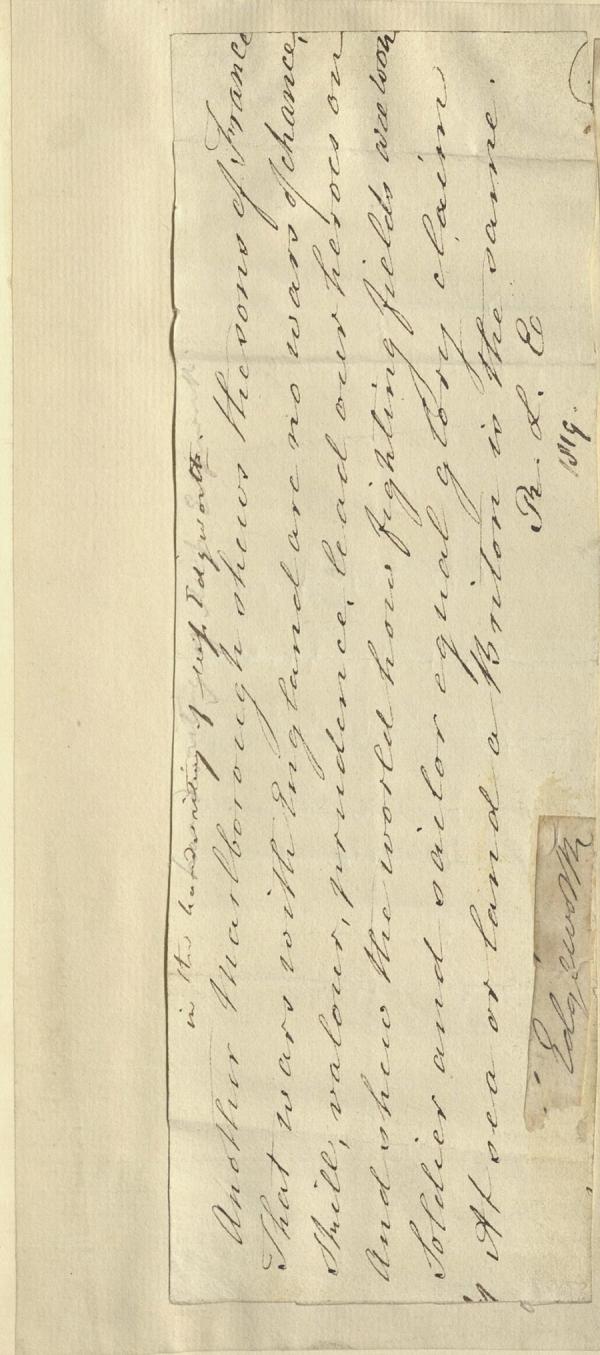 in the handwriting of Edgworth.
Another Marlborough shews the sons of France
That wars with England are no wars of chance,
Skill, valour, prudence, lead our heroes on
And shew the world how fighting fields are won
Soldier and sailor equal glory claim
At sea or land a Briton is the same.
R. L. E
1819.
Edgeworth